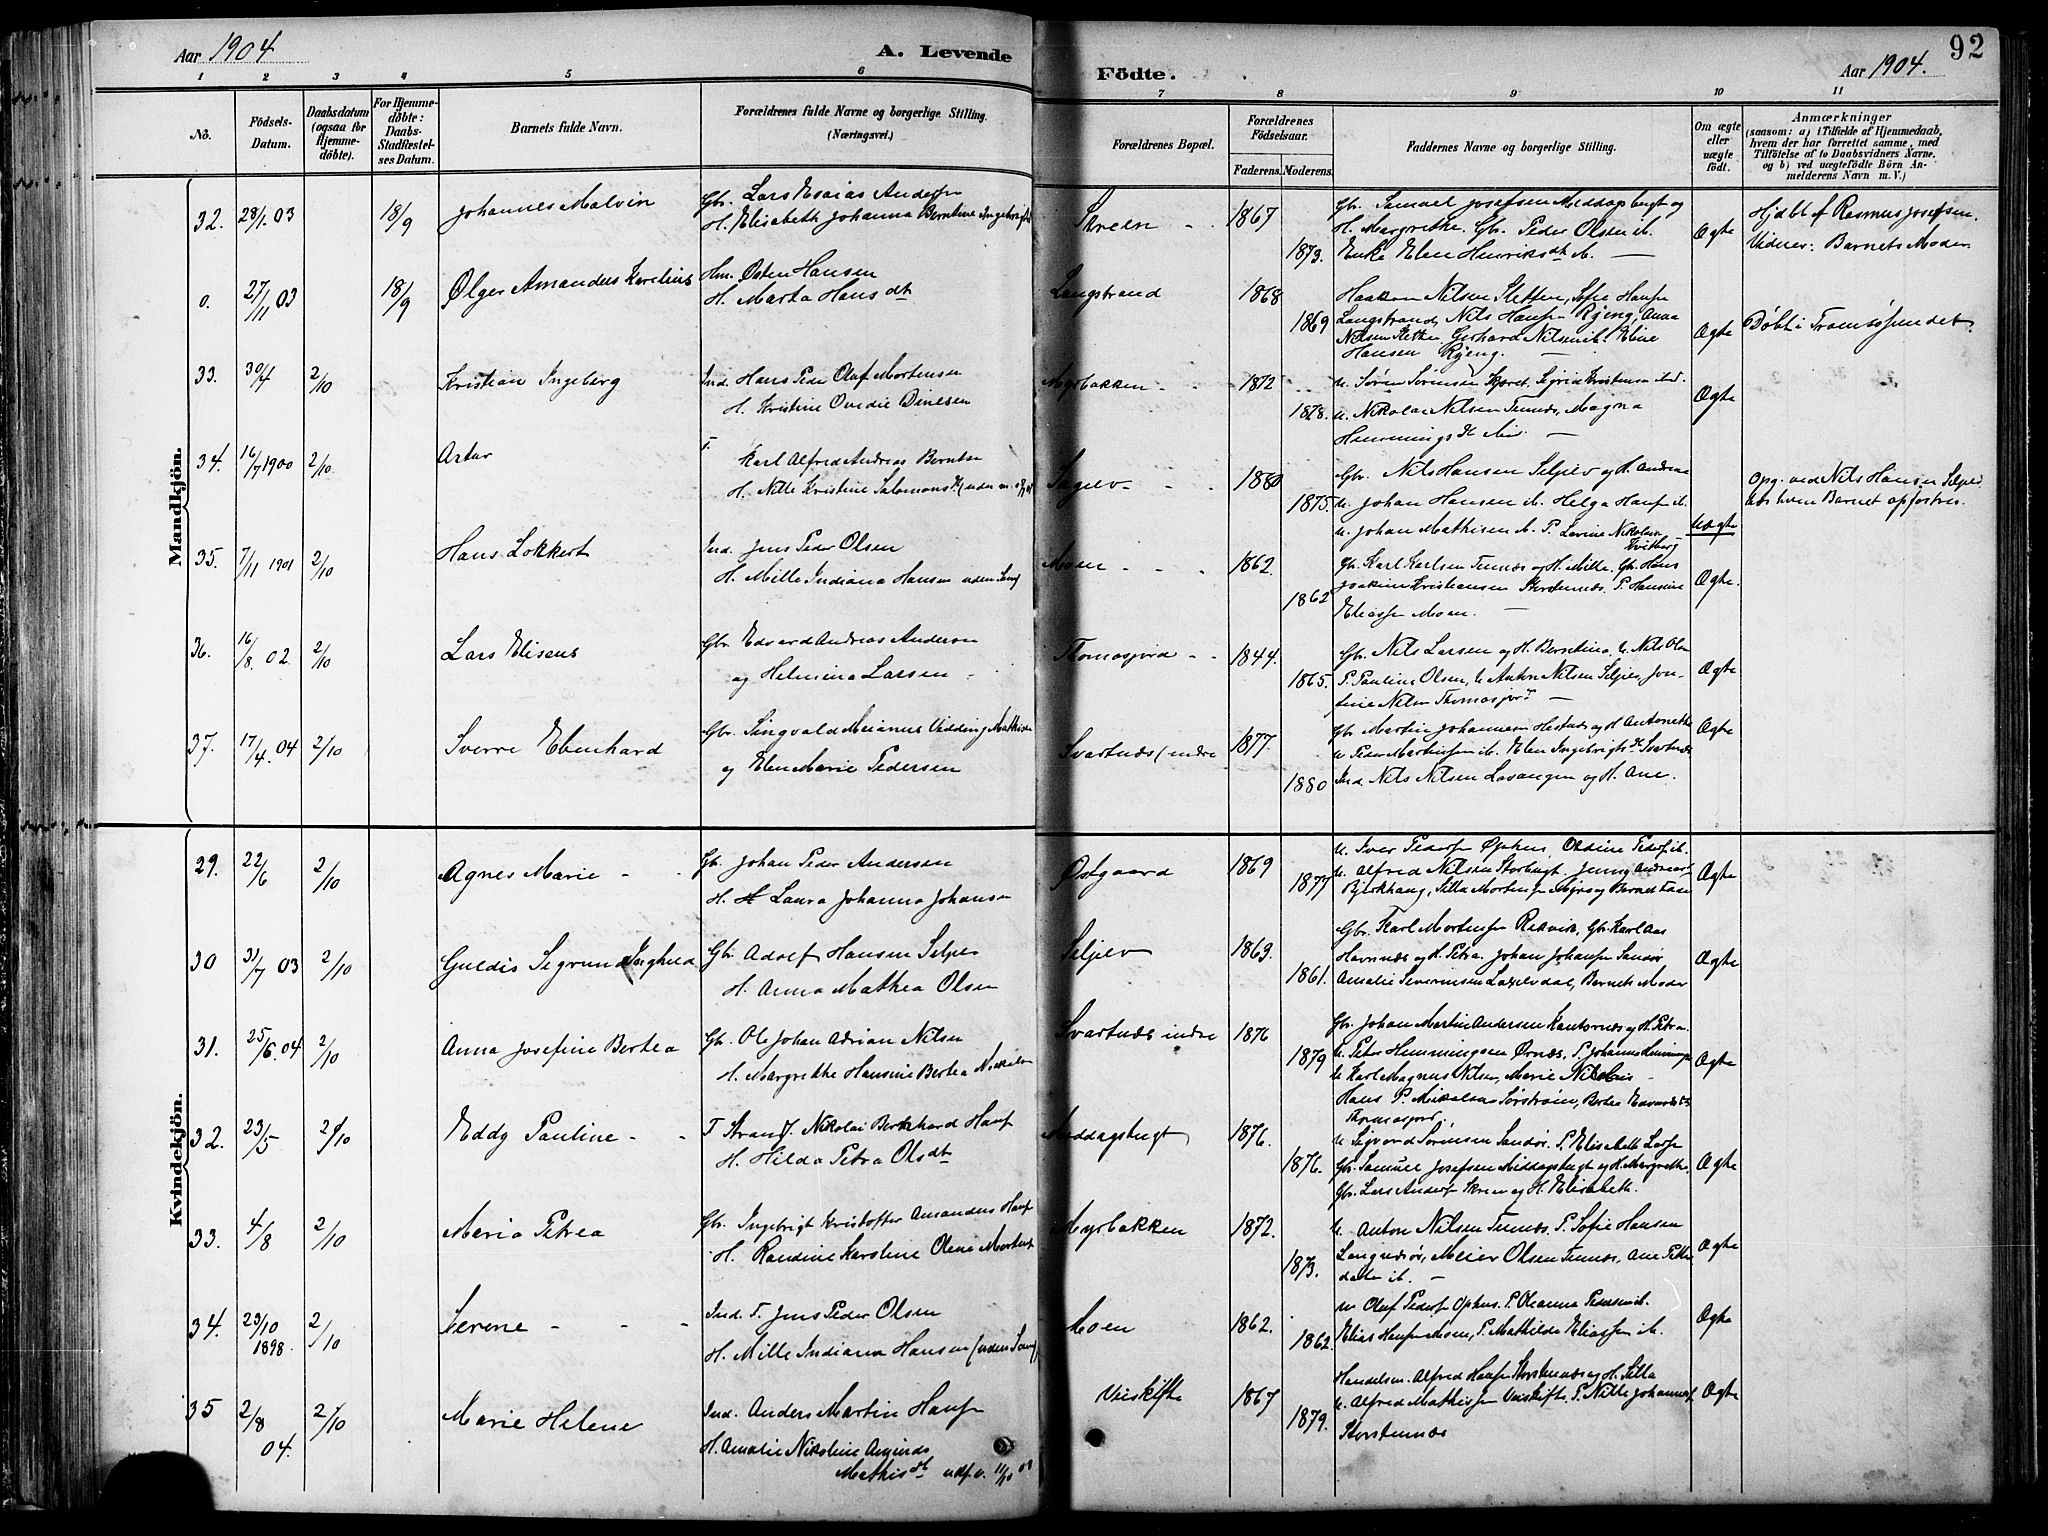 Aar 1904
A. Levende
Födte.
Aar 1904.
92
1 2 3 4 5 6 7 8 9 10 11
No.
Födsels-
Datum.
Daabsdatum
(ogsaa for
Hjemme-
döbte).
For Hjemme-
döbte:
Daabs-
Stadfæstel-
ses Datum.
Barnets fulde Navn.
Forældrenes fulde Navne og borgerlige Stilling.
(Næringsvei.)
Forældrenes Bopæl.
Forældrenes
Födselsaar.
Faderens. Moderens.
Faddernes Navne og borgerlige Stilling.
Om ægte
eller
uægte
födt.
Anmærkninger
(saasom: a) i Tilfælde af Hjemmedaab,
hvem der har forrettet samme, med
Tilföielse af to Daabsvidners Navne.
og b) ved uægtefödte Börn An-
melderens Navn m. V.)
Mandkjön.
32. 28/1.03 18/9 Johannes Malvin
Gbr. Lars Esaias Andersen
H. Elisabeth Johanna Berntine
Skreen 1867
1873.
Gbr. Samuel Josefsen Middagsbugt og
H. Margrethe. Gbr. Peder Olsen ib.
Enke Elen Henriksdt ib.
Ægte
Hjdbt af Rasmus Josefsen.
Vidner: Barnets Moder
0. 27/11 03 18/9 Ølger Amandus Karelius
Hm. Østen Hansen
H. Marta Hansdt
Langstrand 1868
1869
Haakon Nilsen Sletten, Sofie Hansen
Langstrand, Nils Hansen Rjeng, Anna
Nilsen Gerhard Nilsen ib. Eline
Hansen Rjeng.
Ægte
Døbt i Tromsøsundet
33. 30/4 2/10 Kristian Ingeberg
Ind. Hans Peder Olaf Mortensen
H. Kristine Ovedie
Myrbakken 1872
1878.
U. Søren Sørensen Sigrid Kristensen ibd.
U. Nikolai Nilsen Tennes, Magna
Hemmingsdt
Ægte
34. 16/7 1900 2/10 Artur
F. Karl Alfred Andreas Berntsen
H. Nille Kristine Salomonsdt
1880
1875.
Gbr. Nils Hansen Seljelv og H. Andrea
U. Johan Hansen ib. Helga Hansen ib.
U. Johan Mathisen ib. P. Lovine Nikolaisen
Kvitberg
Uægte
Opg. ved Nils Hansen Seljelv
hos hvem Barnet opfostres.
35. 7/11 1901 2/10 Hans Lokkert
Ind. Jens Peder Olsen
H. Mille Indiana Hansen
Moen 1862.
1862
Gbr. Karl Karlsen Tennes og H. Mille. Gbr. Hans
Joakim Kristiansen Storstennes. P. Hansine
Eliassen Moen.
Ægte.
36. 16/8. 02. 2/10 Lars Eliseus
Gbr. Edvard Andreas Andersen
og Helmina Larsen
Thomasjord 1844.
1865.
Gbr. Nils Larsen og H. Berntina. U. Nils Olsen
P. Pauline Olsen, U. Anton Nilsen Seljelv, Jon-
sine Nilsen Thomasjord
Ægte
37. 17/4. 04 2/10 Sverre Ebenhard
Gbr. Singvald Meianus Mathisen
og Elen Marie Pedersen
Svartnæs (indre 1877.
1880
Gbr. Martin Johannesen Hestnæs og H. Antonette
U. Peder Martinsen ib. Elen Ingebrigtsdt Svartnæs
Ind. Nils Nilsen Lavangen og H. Ane.
Ægte
Kvindekjön.
29. 22/6 2/10 Agnes Marie
Gbr. Johan Peder Andersen
H. Laura Johanna Johansen
Østgaard 1869
1877
U. Iver Pedersen Ophus Oldine Pedersen ib.
U. Alfred Nilsen Storbugt. Jenny Andreas
Bjerkhaug, Sitta Mortensen
Ægte
30 31/7 03 2/10 Guldis Sigrun
Gbr. Adolf Hansen Seljelv
H. Anna Mathea Olsen
Seljelv 1863
1861.
Gbr. Karl Mortensen Rødvik, Gbr. Karl Aas
Havnnæs og H. Petra. Johan Johansen Sandør
Amalie Severinsen Lakselvdal, Barnets Moder
Ægte
31. 25/6. 04 2/10 Anna Josefine Bertea
Gbr. Ole Johan Adrian Nilsen
H. Margrethe Hansine Bertea
Svartnæs indre 1876
1879
Gbr. Johan Martin Andersen Kantornæs og H. Petra.
U. Peter Hemmingsen Ørnæs, P. Johanna Hemmingsen
U. Karl Magnus Nilsen, Marie
Hans P. Mikalsen Sørstrøm, Bertea Edvardsdt
Thomasjord.
Ægte
32. 23/5 2/10 Eddy Pauline
F. Strands. Nikolai Bernhard Hansen
H. Hilda Petra Olsdt
Middagsbugt 1876.
1876.
U. Sigvard Sørensen Sandør. P. Elisabeth Larsen
Gbr. Samuel Josefsen Middagsbugt og H. Margrethe.
Gbr. Lars Andersen Skreen og H. Elisabeth.
Ægte
33. 4/8 2/10 Maria Petrea
Gbr. Ingebrigt Kristoffer Amandus Hansen
H. Randine Karoline Olene Mortens
Myrbakken 1872.
1873.
U. Anton Nilsen Tennes. P. Sofie Hansen
Meier Olsen Tennes, Ane
ib.
Ægte
34. 23/10 1898. 2/10 Serene
Ind. F. Jens Peder Olsen
H. Mille Indiana Hansen
Moen 1862.
1862.
U. Oluf Pedersen Ophus. P. Oleanna Pedersen ib.
Elias Hansen Moen, P. Mathilde Eliassen ib.
Ægte
35 2/8 04. 2/10 Marie Helene
Ind. Anders Martin Hansen
H. Amalie Nikoline
Mathisdt
1867
1879.
Handelsm. Alfred Hansen Storstennæs og H. Sitta
U. Alfred Mathissen P. Nille Johannes
Storstennæs
Ægte